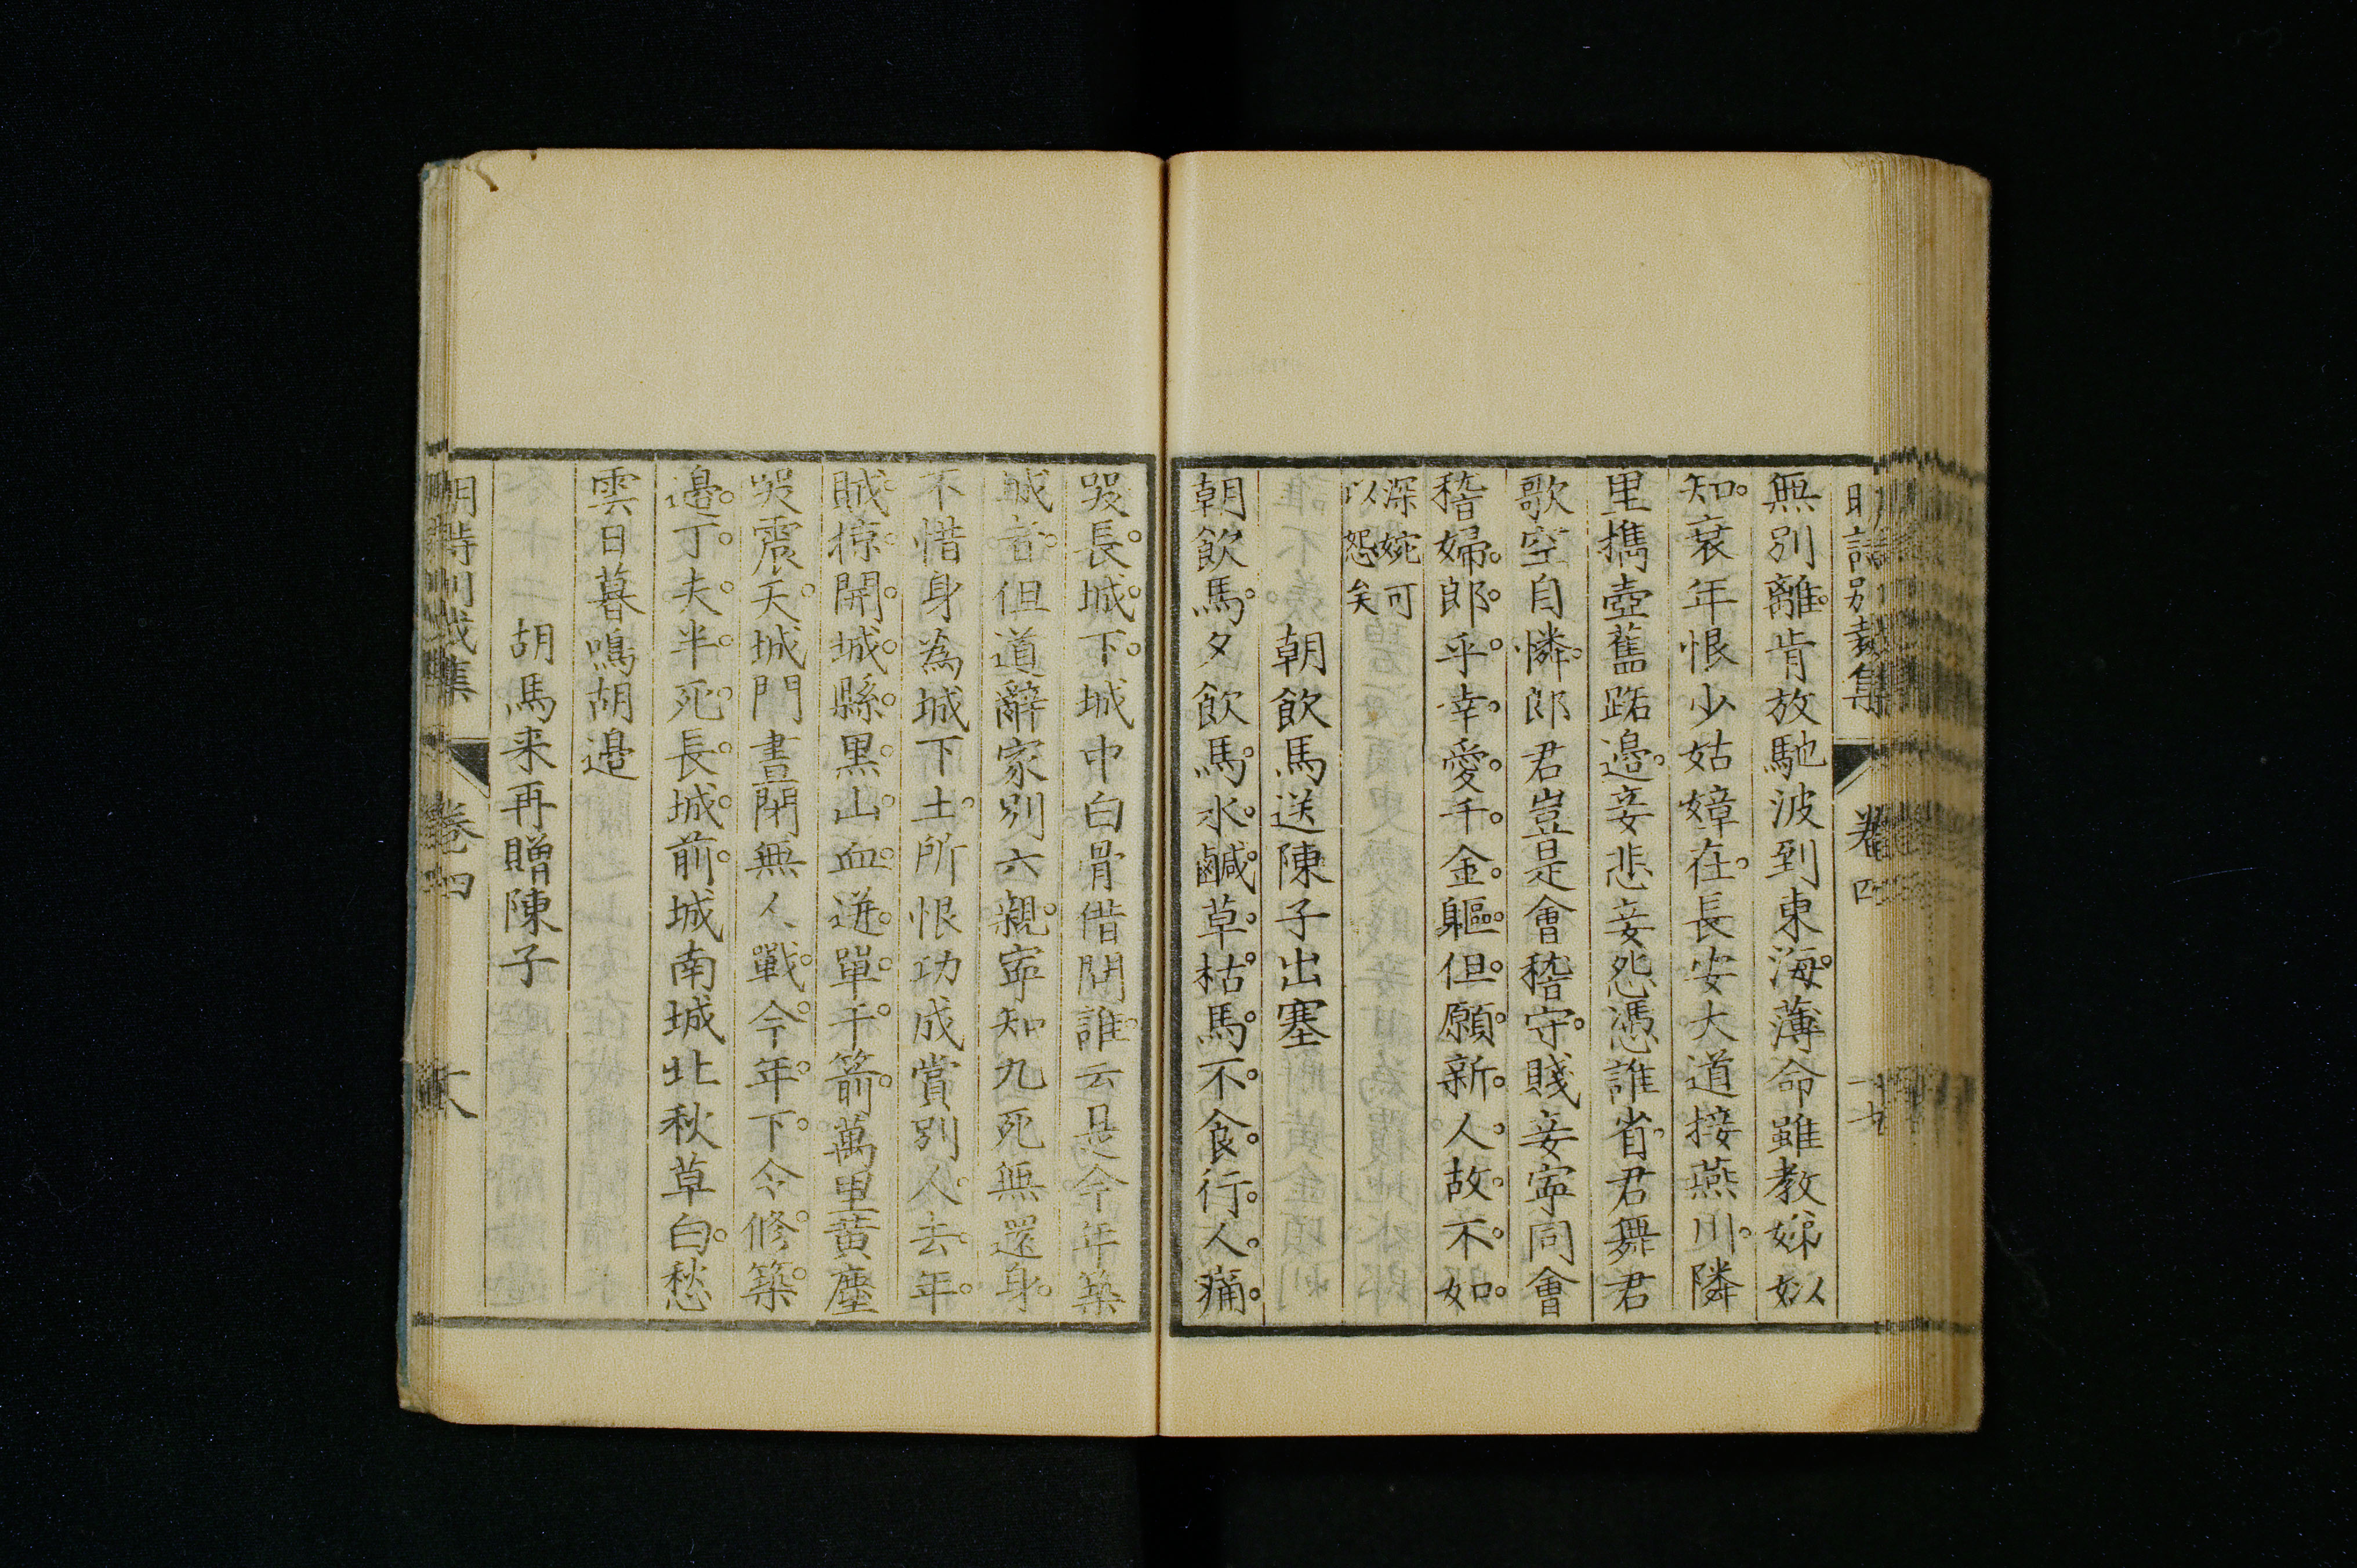 明詩別裁集 卷四
無別離。肯放馳波到東海。薄命雖教娣姒
知。衰年恨少姑嫜在。長安大道接燕川。隣
里擕壺舊跖邉。妾悲妾怨憑誰省。君舞君
歌空自憐。郎君豈是會稽守。賤妾寕同會
稽婦。郎乎幸愛千金軀。但願新人故不如。
深婉可
以怨矣
朝飲馬送陳子出塞
朝飲馬。夕飲馬。水鹹草枯馬不食。行人痛
哭長城下。城中白骨借問誰。云是今年築
城者。但道辭家別六親。寕知九死無還身。
不惜身為城下土。所恨功成賞別人。去年
賊掠開城縣。黒山血迸單千箭。萬里黃塵
哭震天。城門晝閉無人戰。今年下令修築
邉。丁夫半死長城前。城南城北秋草白。愁
雲日暮鳴胡邉
胡馬来再贈陳子
明詩別裁集 卷四